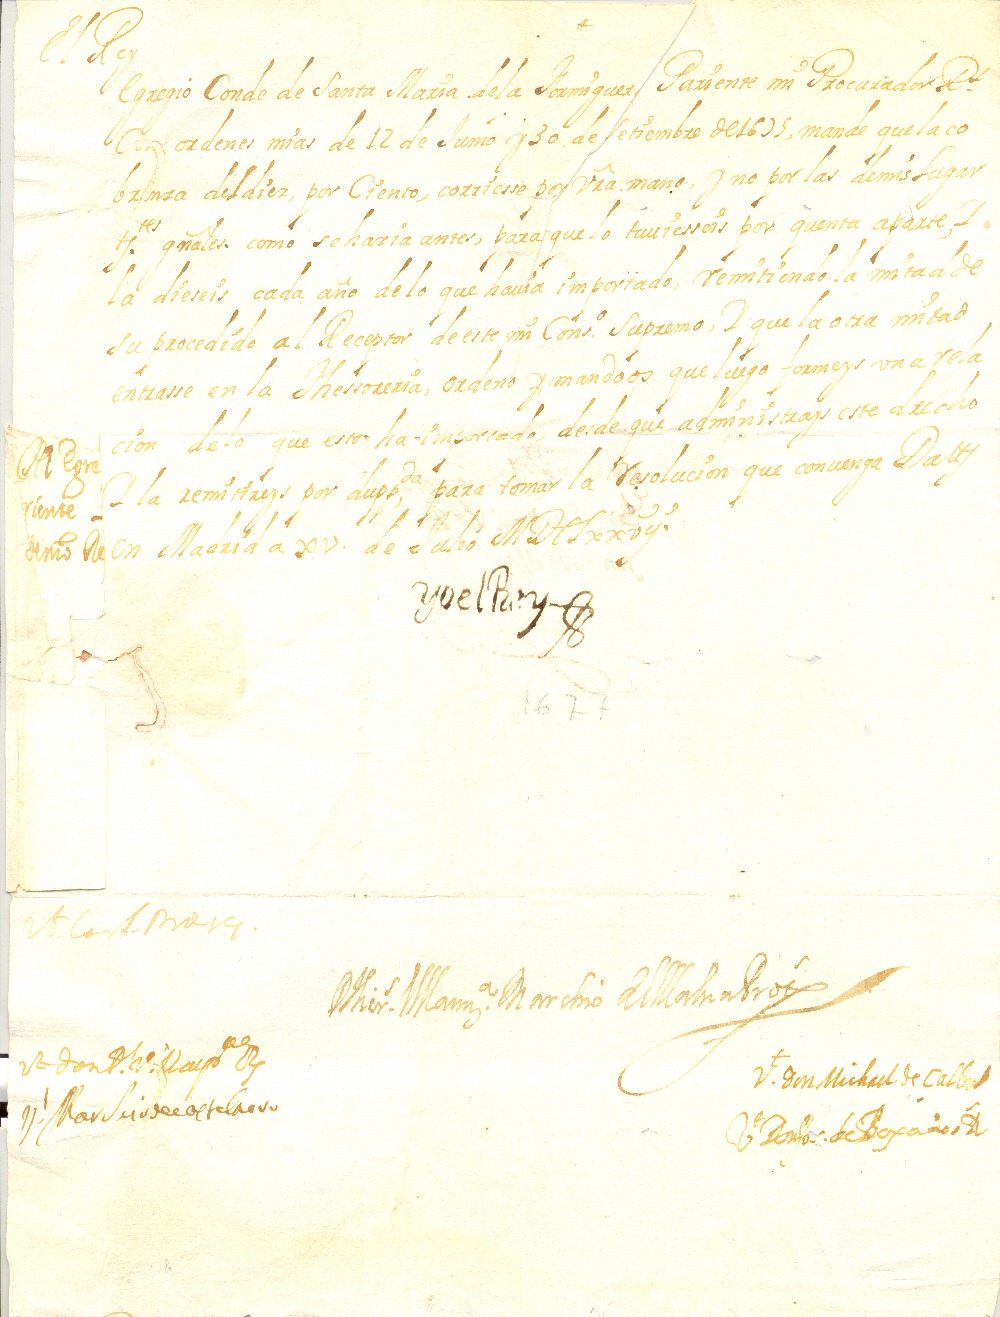 El Rey
Egregio Conde de Santa Maria de la Formiguera Pariente mi Procurador Rl.
Con ordenes mias de 12 de Junio y 30 de setiembre de 1675, mande que la co
branza del diez por Ciento, corriesse por vra. mano, y no por las demis Lugar
tes. gnales. como se haria antes, para que lo tuviesseis por quenta aparte, I
la dieseis cada año de lo que havia importado, remitiendo la mitad de
su procedido al Receptor de este mi Conso. Supremo, I que la otra mitad
entrasse en la Thessoreria, ordeno y mandoos que luego formeys una rela
cion de lo que esto ha importado, desde que administrays este drecho
I la remitireys por dupp.da para tomar la resolucion que convenga Datts
en Madrid a XV. de Julio MDCLxxvij.
Al Egre
riente
de mi Re
yo el Rey
1677
Marchio
Vt. don Michael de Calba